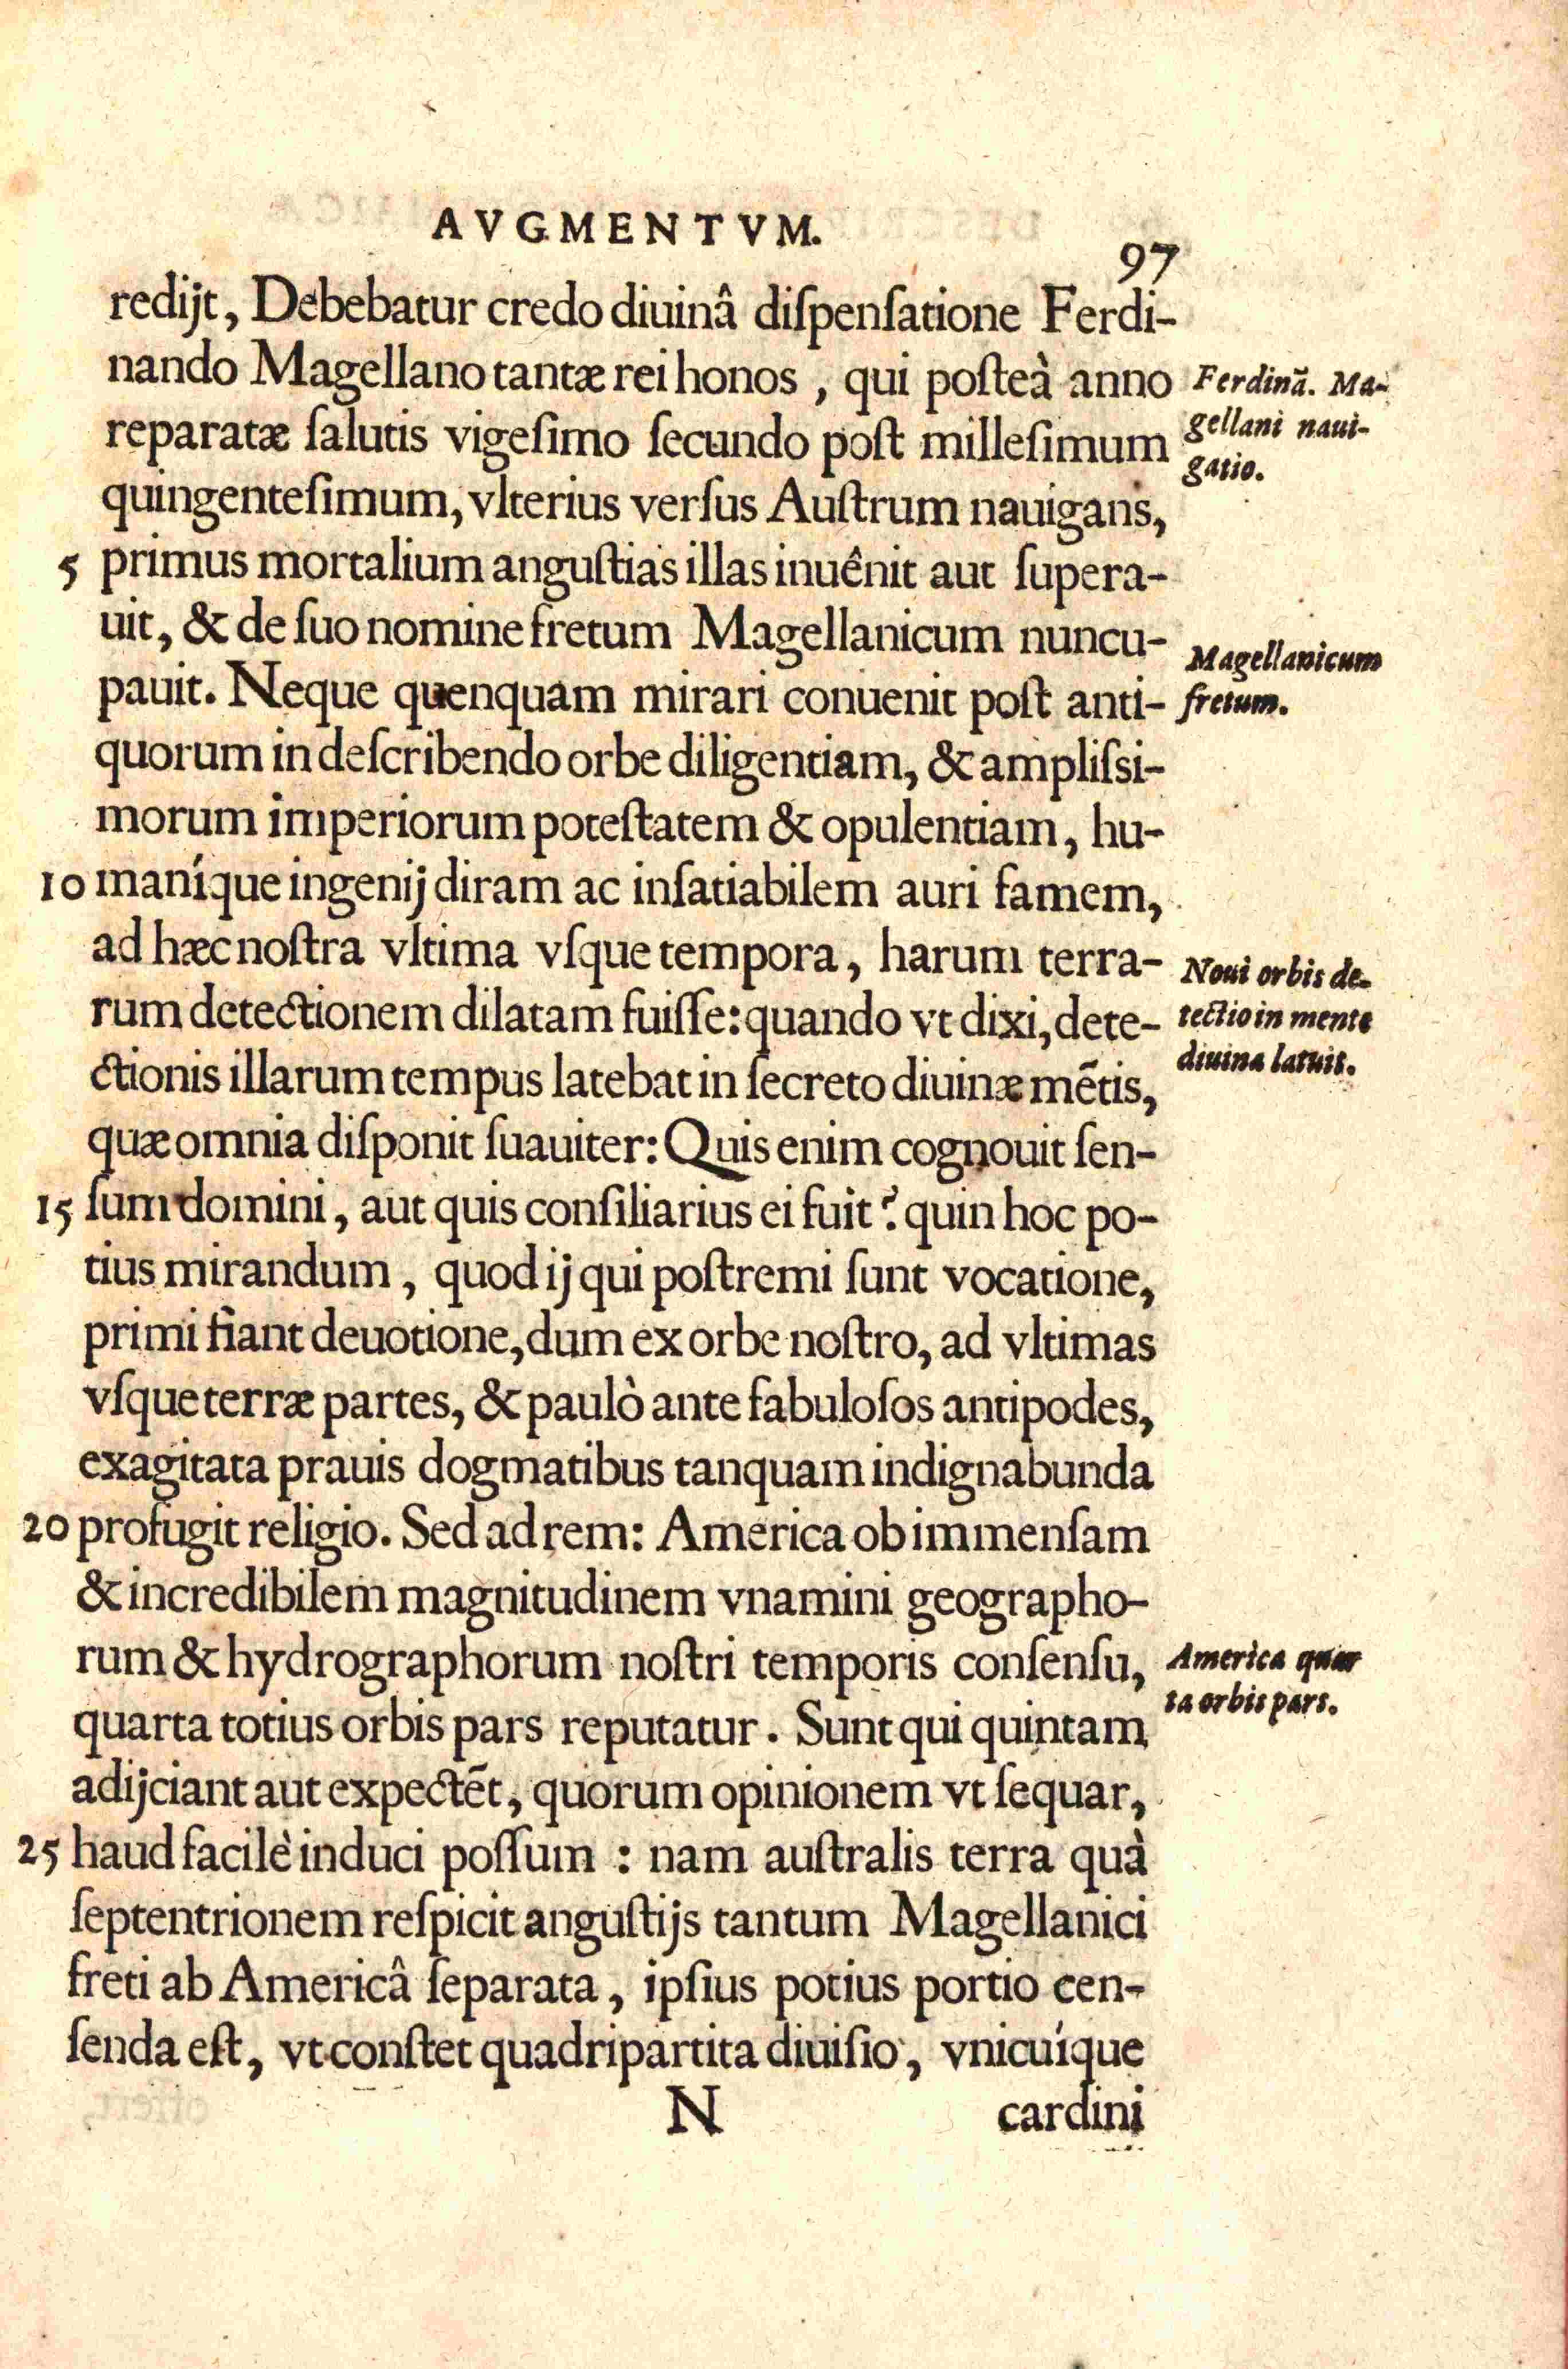 AVGMENTVM.
97
redijt, Debebatur credo diuinâ diſpenſatione Ferdi-
nando Magellano tantæ rei honos, qui poſteà anno
Ferdinã. Ma-
reparatæ ſalutis vigeſimo ſecundo poſt milleſimum
gellani naui-
gatio.
quingenteſimum, vlterius verſus Auſtrum nauigans,
5 primus mortalium anguſtias illas inuênit aut ſupera-
uit, & de ſuo nomine fretum Magellanicum nuncu-
Magellanicum
pauit. Neque quenquam mirari conuenit poſt anti-
fretum.
quorum in deſcribendo orbe diligentiam, & ampliſsi-
morum imperiorum poteſtatem & opulentiam, hu-
10 maníque ingenij diram ac inſatiabilem auri famem,
ad hæc noſtra vltima vſque tempora, harum terra-
Noui orbis de-
rum detectionem dilatam fuiſſe: quando vt dixi, dete-
tectio in mente
ctionis illarum tempus latebat in ſecreto diuinæ mẽtis,
diuina latuit.
quæ omnia diſponit ſuauiter: Quis enim cognouit ſen-
15 ſum domini, aut quis conſiliarius ei fuit? quin hoc po-
tius mirandum, quod ij qui poſtremi ſunt vocatione,
primi fiant deuotione, dum ex orbe noſtro, ad vltimas
vſque terræ partes, & paulò ante fabuloſos antipodes,
exagitata prauis dogmatibus tanquam indignabunda
20 profugit religio. Sed ad rem: America ob immenſam
& incredibilem magnitudinem vnamini geographo-
rum & hydrographorum noſtri temporis conſenſu,
America quar
quarta totius orbis pars reputatur. Sunt qui quintam
ta orbis pars.
adijciant aut expectẽt, quorum opinionem vt ſequar,
25 haud facilè induci poſſum : nam auſtralis terra quà
ſeptentrionem reſpicit anguſtijs tantum Magellanici
freti ab Americâ ſeparata, ipſius potius portio cen-
ſenda eſt, vt conſtet quadripartita diuiſio, vnicuíque
N
cardini